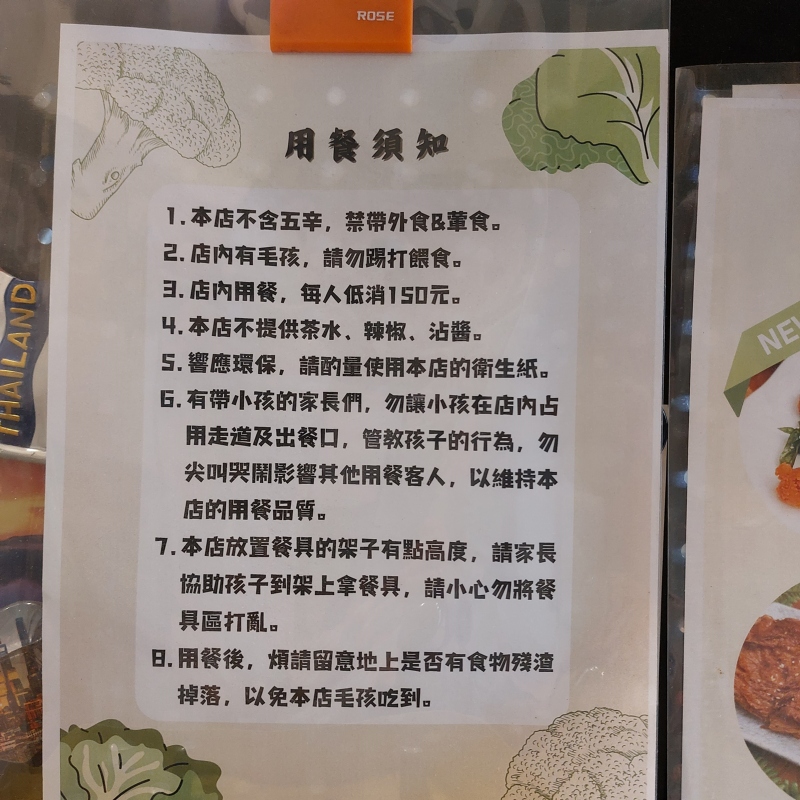 ROSE
用餐須知
1.本店不含五辛，禁帶外食&葷食。
2.店內有毛孩，請勿踢打餵食。
3.店內用餐，每人低消150元。
4.本店不提供茶水、辣椒、沾醬。
5.響應環保，請酌量使用本店的衛生紙。
6.有帶小孩的家長們，勿讓小孩在店內占
用走道及出餐口，管教孩子的行為，勿
尖叫哭鬧影響其他用餐客人，以維持本
店的用餐品質。
7.本店放置餐具的架子有點高度，請家長
協助孩子到架上拿餐具，請小心勿將餐
具區打亂。
8.用餐後，煩請留意地上是否有食物殘渣
掉落，以免本店毛孩吃到。
THAILAND